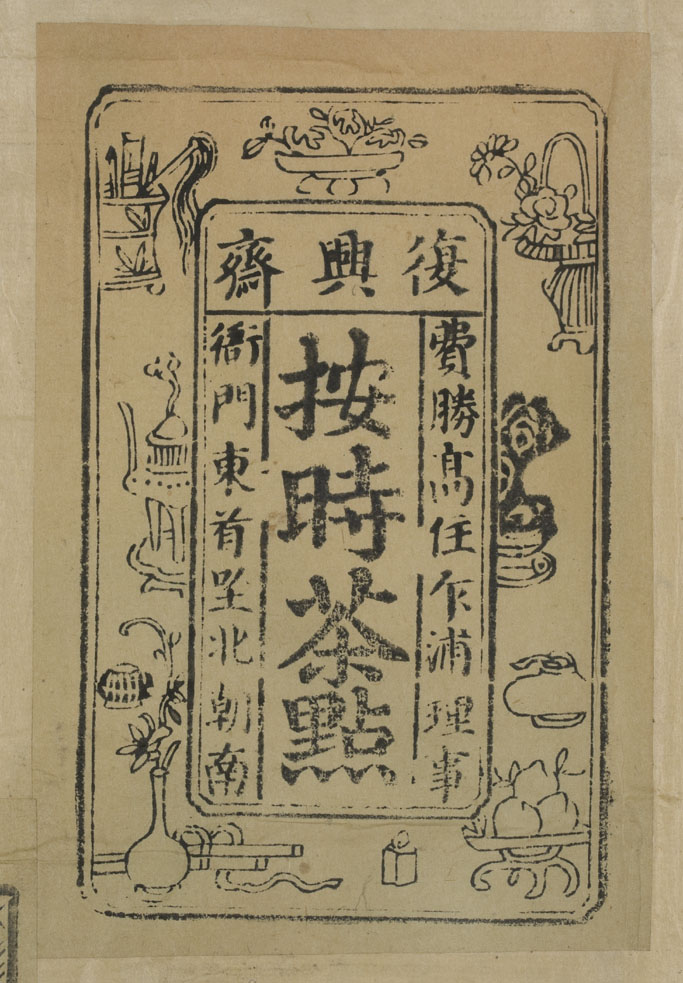 復興齋
費勝高住乍浦理事
按時茶點
衙門東首坐北朝南